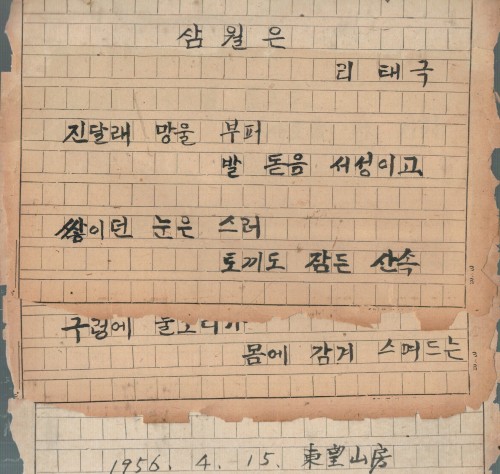 삼월은
리 태 극
진달래 망울 부퍼
발 돋음 서성이고
쌓이던 눈은 스러
토끼도 잠든 산속
구렁에
몸에 감겨 스며드는
1956. 4. 15. 東望山房